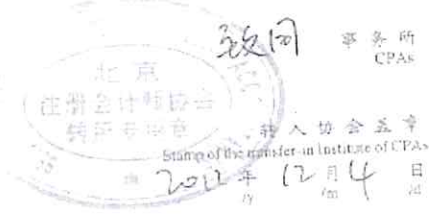 致同 事务所
CPAs
北京
注册会计师协会
转所专用章
转入协会盖章
Stamp of the transfer-in Institute of CPAs
2012年12月4日
/y /m /d